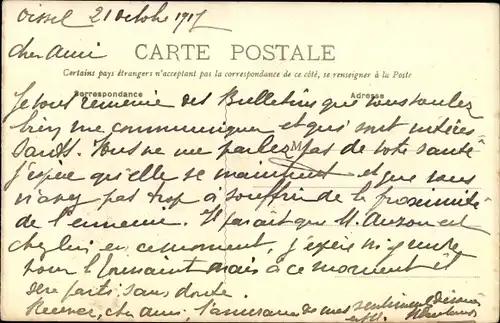 Oissel 21 octobre 1917
cher ami
CARTE POSTALE
Certains pays étrangers n'acceptant pas la correspondance de ce côté, se renseigner à la Poste
Correspondance
Adresse
Je vous remercie des Bulletins que vous voulez
bien me communiquer et qui sont intéres-
sants. Vous ne me parlez pas de votre santé
M
j'espère qu'elle se maintient et que vous
n'avez pas trop à souffrir de la proximité
de l'ennemi. Il paraît que M. Auzou est
chez lui en ce moment, j'espère
pour mais à ce moment il
sera parti sans doute.
Recevez, cher ami, l'assurance de mes sentiments dévoués